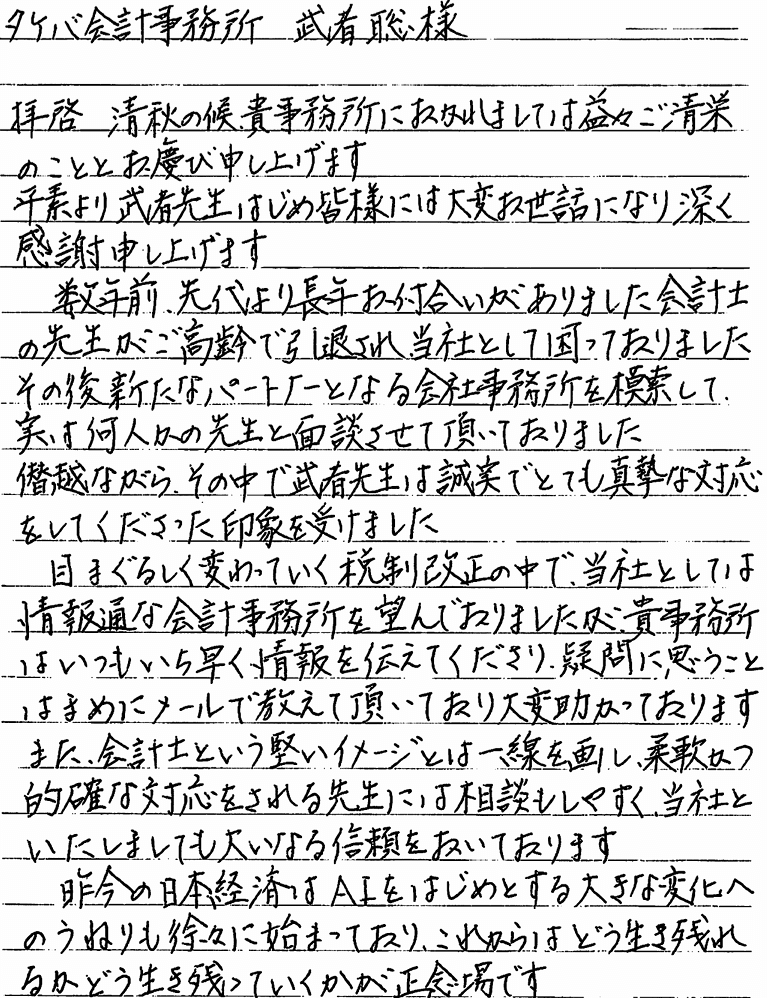 タケバ会計事務所　武者聡様
拝啓　清秋の候、貴事務所におかれましては益々ご清栄
のこととお慶び申し上げます
平素より武者先生はじめ皆様には大変お世話になり深く
感謝申し上げます
数年前、先代より長年お付合いがありました会計士
の先生がご高齢で引退され、当社として困っておりました
その後新たなパートナーとなる会社事務所を模索して、
実は何人かの先生と面談させて頂いておりました
僭越ながら、その中で武者先生は誠実でとても真摯な対応
をしてくださった印象を受けました
目まぐるしく変わっていく税制改正の中で、当社としては
情報通な会計事務所を望んでおりましたが、貴事務所
はいつもいち早く情報を伝えてくださり、疑問に思うこと
はまめにメールで教えて頂いており大変助かっております
また、会計士という堅いイメージとは一線を画し、柔軟かつ
的確な対応をされる先生には相談もしやすく、当社と
いたしましても大いなる信頼をおいております
昨今の日本経済はAIをはじめとする大きな変化へ
のうねりも徐々に始まっており、これからはどう生き残れ
るかどう生き残っていくかが正念場です